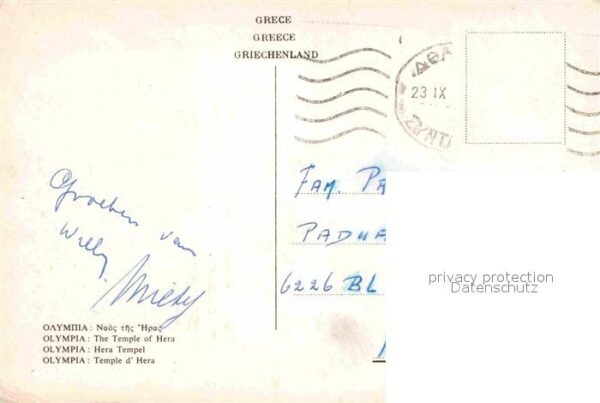 GRECE
GREECE
GRIECHENLAND
ΑΘΗ
23 IX
ΣΥΝΤ
Groeten van
Willy
FAM. PA
PADUA
6226 BL
privacy protection
Datenschutz
ΟΛΥΜΠΙΑ : Ναὸς τῆς Ἥρας
OLYMPIA : The Temple of Hera
OLYMPIA : Hera Tempel
OLYMPIA : Temple d' Hera